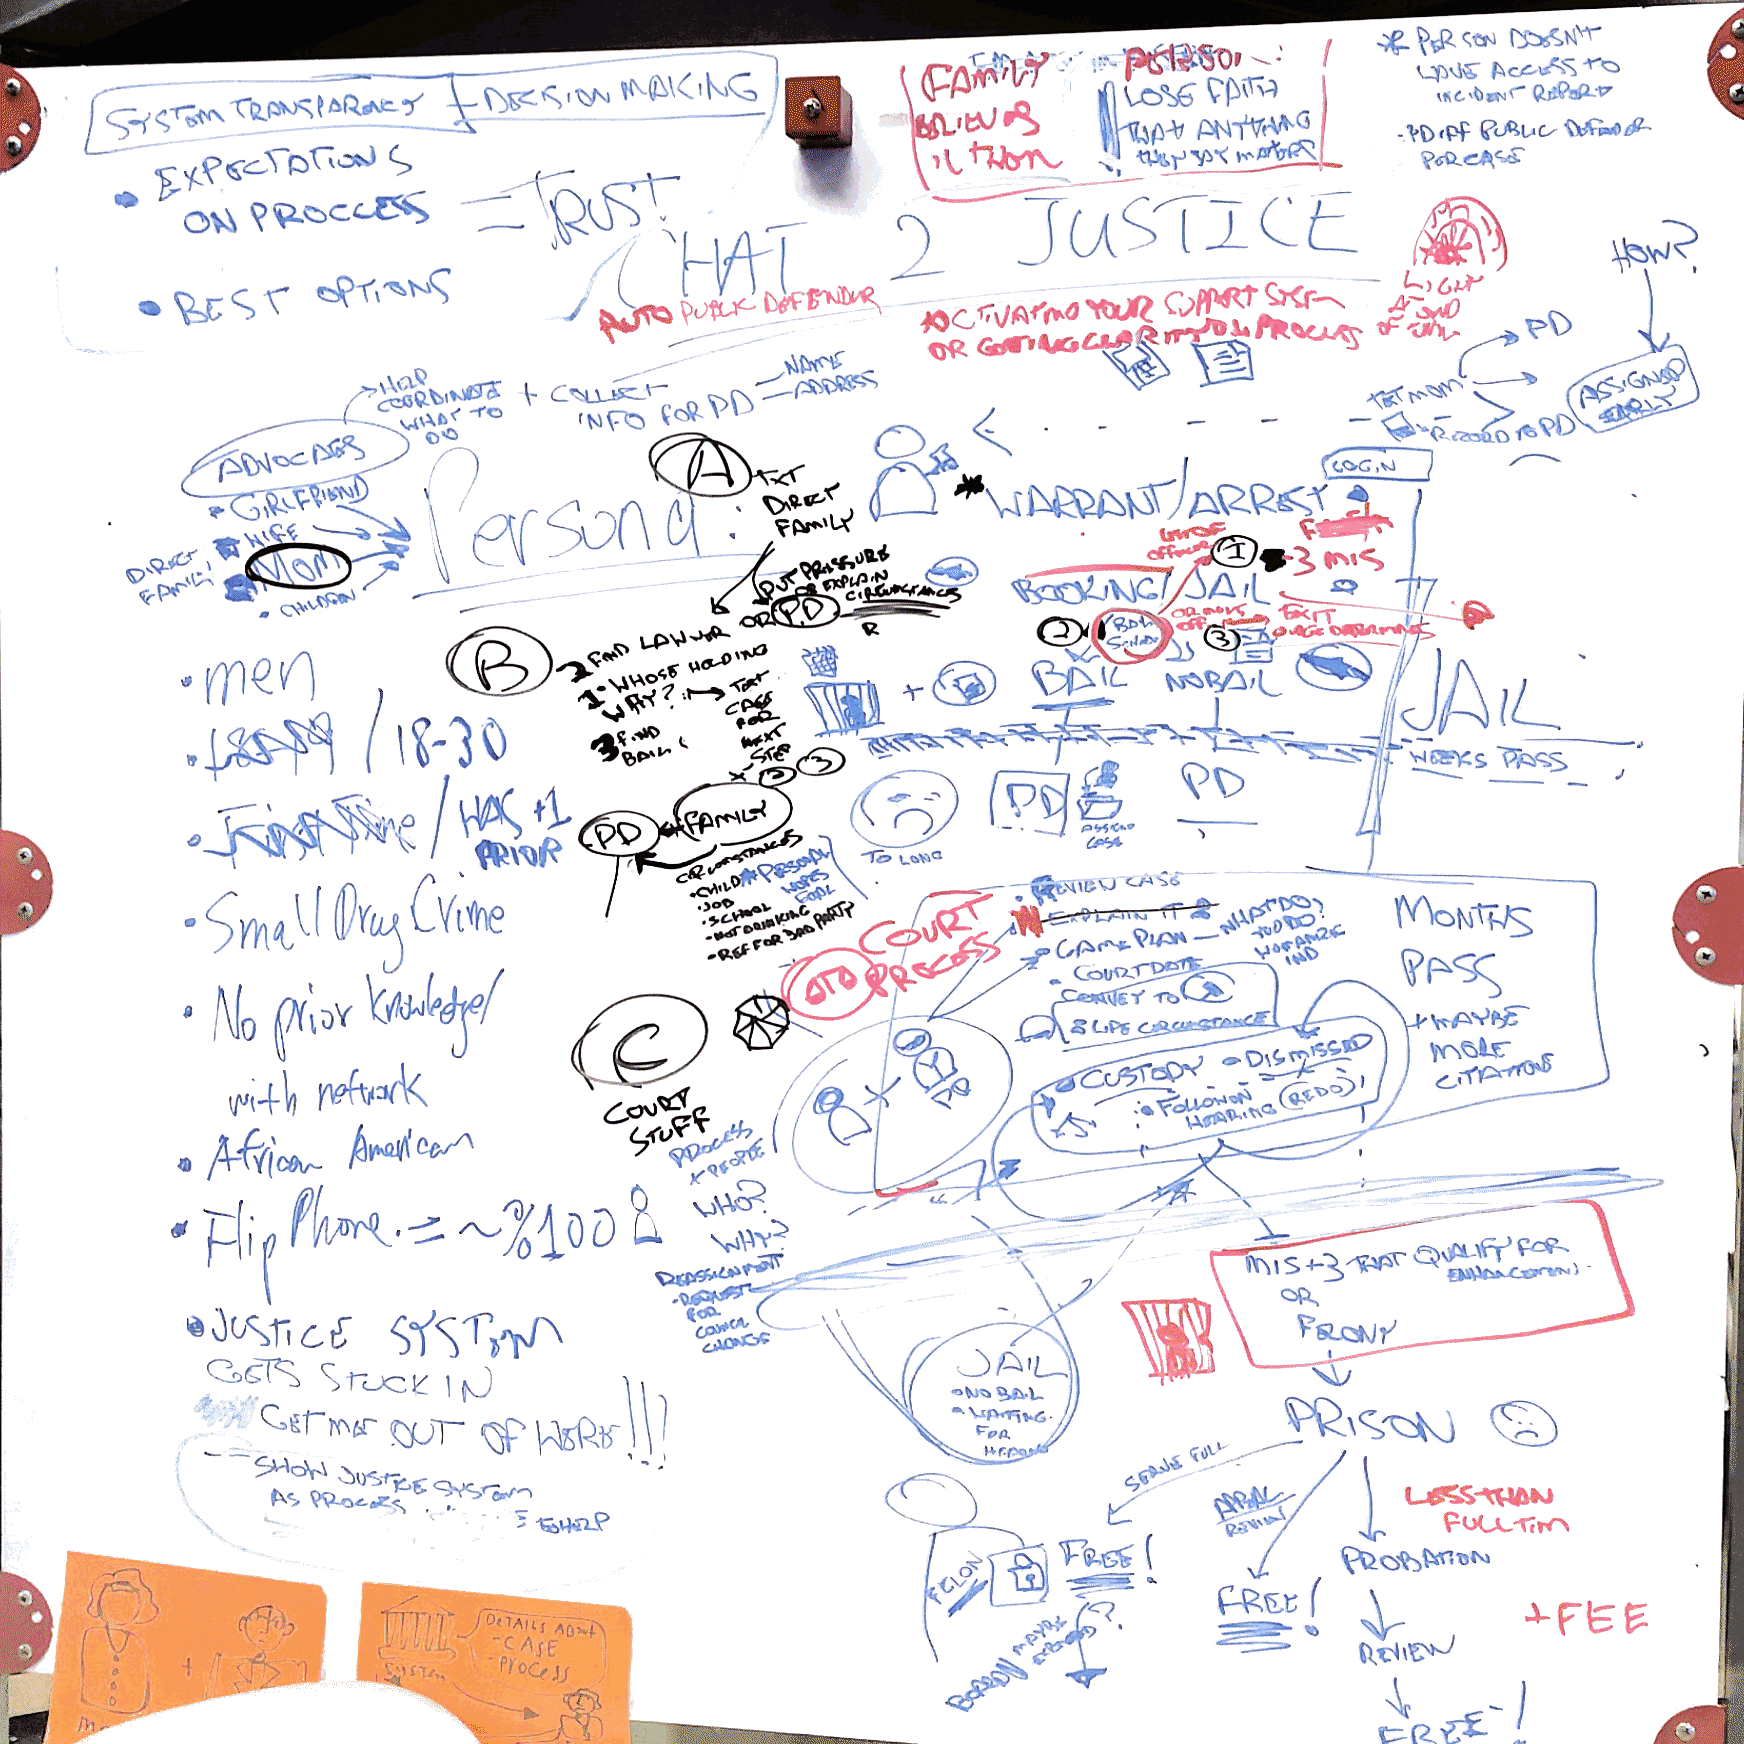 SYSTEM TRANSPARENCY + DECISION MAKING
• EXPECTATIONS
ON PROCCESS
= TRUST
• BEST OPTIONS
FAMILY
PERSON
LOSE FAITH
THAT ANYTHING
THEY SAY MATTERS
* PERSON DOESN'T
HAVE ACCESS TO
INCIDENT REPORT
DIFF PUBLIC DEFENDER
PER CASE
CHAT 2 JUSTICE
AUTO PUBLIC DEFENDER
ACTIVATING YOUR SUPPORT SYSTEM
OR GETTING CLARITY ON PROCESS
LIGHT
AT END
OF TUNNL
HOW?
PD
ASSIGNED
EARLY
TXT MOM
RECORD TO PD
HELP
COORDINATE
WHAT TO
DO
+ COLLECT
INFO FOR PD
NAME
ADDRESS
ADVOCATES
• GIRLFRIEND
WIFE
MOM
• CHILDREN
DIRECT
FAMILY!
Persona:
A
TXT
DIRECT
FAMILY
PUT PRESSURE
OR EXPLAIN
CIRCUMSTANCES
B
2 FIND LAWYER OR PD
1• WHOSE HOLDING
WHY?
3 FIND
BAIL
TEXT
CASE
FOR
NEXT
STEP
2 3
LOGIN
* WARRANT/ARREST
1
3 MIS
BOOKING/JAIL
2
BAIL
SCHED
3
EXIT
JUDGE DETERMINES
BAIL
NO BAIL
JAIL
WEEKS PASS
TO LONG
PD
ASSIGN
CASE
PD
• men
/ 18-30
/ HAS +1
PRIOR
• Small Drug Crime
• No prior knowledge/
with network
• African American
• Flip Phone. = ~%100
• JUSTICE SYSTEM
GETS STUCK IN
GET ME OUT OF HERE!!!
SHOW JUSTICE SYSTEM
AS PROCESS
PD
FAMILY
CIRCUMSTANCES
• CHILD
• JOB
• SCHOOL
• NOT DRINKING
• REF FOR 3RD PARTY
* PERSONAL
HOPES
GOAL
COURT
PROCESS
REVIEW CASE
EXPLAIN IT
• GAME PLAN
WHAT DO?
TO DO
• COURT DATE
CONVEY TO
& LIFE CIRCUMSTANCE
• CUSTODY
• DISMISSED
• FOLLOW ON
HEARING (REDO)
MONTHS
PASS
+ MAYBE
MORE
CITATIONS
C
COURT
STUFF
PROCESS
+ PEOPLE
WHO?
WHY?
REASSIGNMENT
• REQUEST
FOR
COUNCIL
CHANGE
JAIL
• NO BAIL
• WAITING
FOR
HEARING
MIS +3 THAT QUALIFY FOR
ENHANCEMENTS
OR
FELONY
PRISON
SERVE FULL
APPEAL
REVIEW
LESS THAN
FULL TIM
FELON
FREE!
FREE!
PROBATION
REVIEW
FREE!
+ FEE
MAYBE
?
+
SYSTEM
DETAILS ABOUT
- CASE
- PROCESS